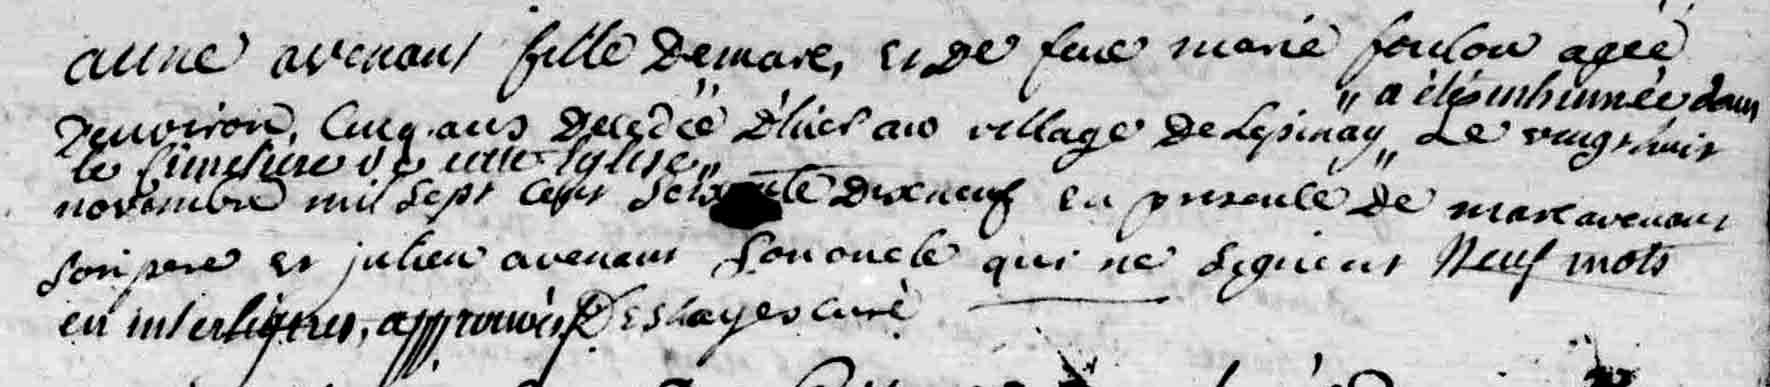 anne avenant fille Demarc, et De feue marie foulon agée
"a été inhumée dans
Denviron, Cinq ans Decedée D'hier au village De Lepinay" Le vingt huit
le Cimetiere de cette Eglise"
novembre mil Sept Cent Soixante Dixneuf en presence De marc avenant
Son pere et julien avenant Son oncle qui ne Signent Neuf mots
en interlignes, approuvés curé